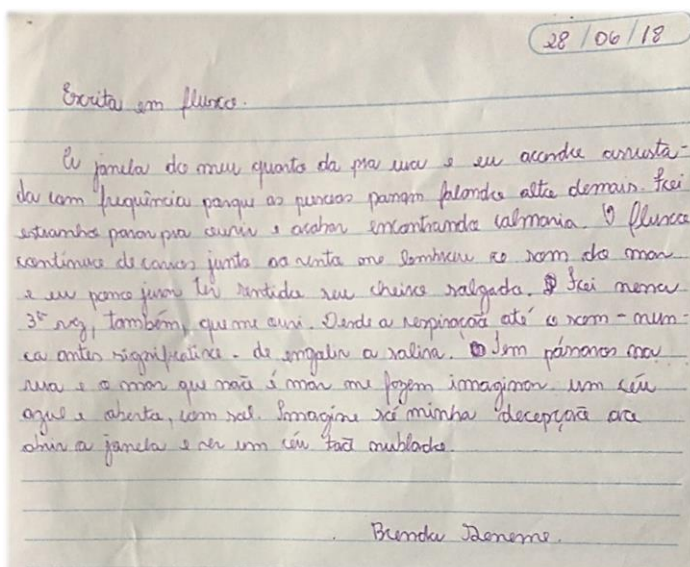 28/06/18
Escrita em fluxo.
A janela do meu quarto da pra rua e eu acordo assusta-
da com frequência porque as pessoas passam falando alto demais. Foi
estranho parar pra ouvir e acabar encontrando calmaria. O fluxo
contínuo de carros junto ao vento me lembrou o som do mar
e eu posso jurar ter sentido seu cheiro salgado. Foi nessa
vez, também, que me ouvi. Desde a respiração até o som - nun-
ca antes significativo - de engolir a saliva. Tem pássaros na
rua e o mar que não é mar me fazem imaginar um céu
azul e aberto, com sol. Imagine só minha decepção ao
abrir a janela e ver um céu tão nublado.
Brenda